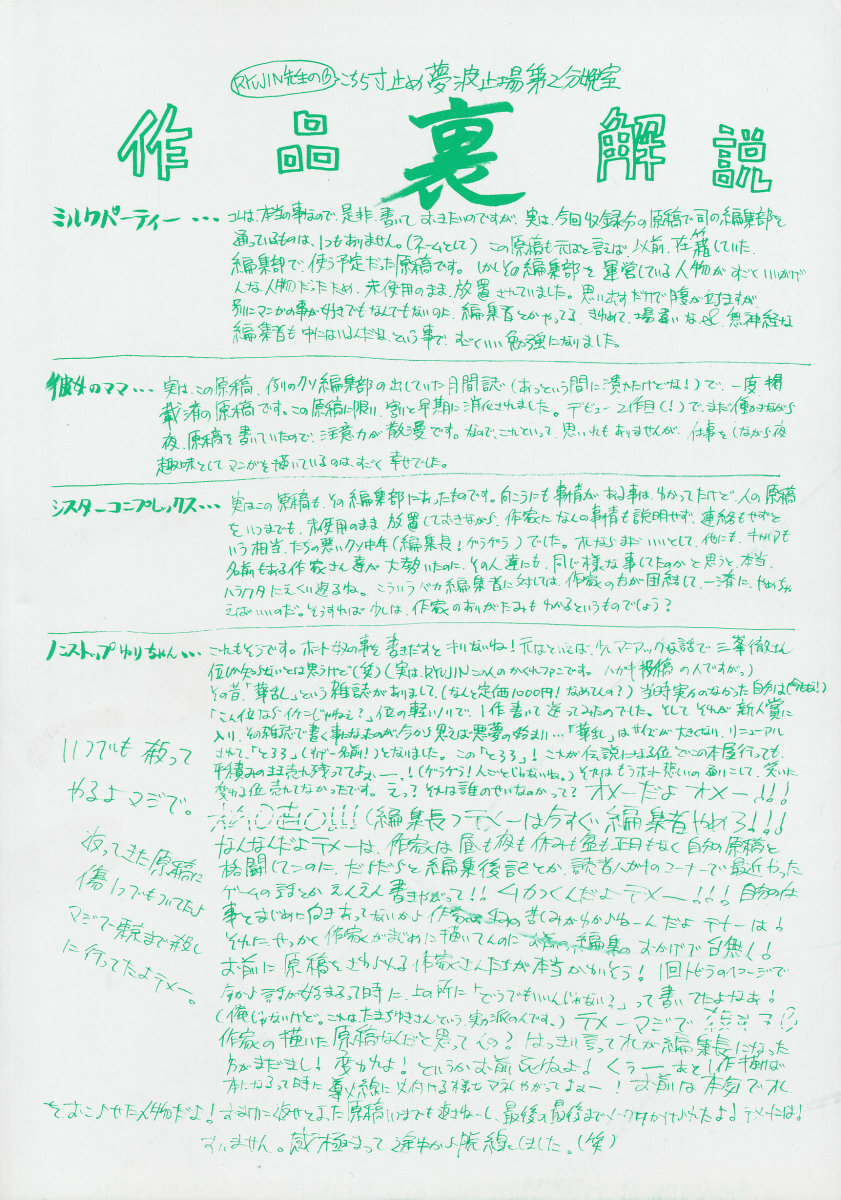 RYUJIN先生の
こちら寸止め夢波止場第2分晩室
作品裏解説
ミルクパーティー・・・
コレは、本当の事なので、是非、書いておきたいのですが、実は、今回収録分の原稿で司の編集部を
通っているものは、1つもありません。(ネームとして) この原稿も元はと言えば、以前、在籍していた
編集部で、使う予定だった原稿です。しかしその編集部を運営している人物がすごくいいかげ
んな人物だったため、未使用のまま、放置されていました。思い出すだけで腹が立ちますが
別にマンガの事が好きでもなんでもないのに、編集者とかやってる、きわめて、場違いな&無神経な
編集者も中にはいるんだな、という事で、すごくいい勉強になりました。
彼女のママ・・・
実は、この原稿、例のクソ編集部の出していた月間誌(あっという間に潰れたけどな!)で、一度掲
載済の原稿です。この原稿に限り、割と早期に消化されました。デビュー2作目(!)で、まだ働きながら
夜、原稿を書いていたので、注意力が散漫です。なので、これといって、思い入れもありませんが、仕事をしながら夜
趣味としてマンガを描いているのは、すごく幸せでした。
シスターコンプレックス・・・
実はこの原稿も、その編集部にあったものです。向こうにも事情がある事は、わかってたけど、人の原稿
をいつまでも、未使用のまま、放置しておきながら、作家になんの事情も説明せず、連絡もせずと
いう相当、たちの悪いクソ中年(編集長!ゲラゲラ)でした。オレならまだいいとして、他にも、キャリアも
名前もある作家さん達が大勢いたのに、その人達にも、同じ様な事してたのかと思うと、本当、
ハラワタにえくり返るね。こういうバカ編集者に対しては、作家の方が団結して、一斉に、やめちゃ
えばいいのだ。そうすれば少しは、作家のありがたみもわかるというものでしょう?
ノンストップゆりちゃん・・・
これもそうです。ホント奴の事を書きだすとキリないね!元はといえば、少しマニアックな話で三峯徹さん
位しか知らないとは思うけど(笑)(実は、RYUJINこの人のかくれファンです。ハガキ投稿の人ですが。)
その昔「華乱」という雑誌がありまして、(なんと定価1000円!なめてんの?)当時実力のなかった自分は(今もか!)
「こん位ならイケンじゃねえ?」位の軽いノリで、1作書いて送ってみたのでした。そして、それが新人賞に
入り、その雑誌で書く事になったのが、今から思えば悪夢の始まり…「華乱」はサイズが大きくなり、リニューアル
されて、「とろろ」(すげー名前!)となりました。この「とろろ」!これが伝説になる位、どこの本屋行っても、
平積みのまま売れ残っててよぉー、!(ゲラゲラ!人ごとじゃないね。)それはもうホント想いの通りこして、笑いに
変わる位、売れてなかったです。えっ?それは誰のせいなのかって?オメーだよオメー!!!
(編集長)テメーは今すぐ編集者やめろ!!!
なんなんだよテメーは、作家は昼も夜も休みも盆も正月もなく自分の原稿と
格闘してんのに、だらだらと編集後記とか、読者ハガキのコーナーで最近やった
ゲームの話とかえんえん書きやがって!!ムカつくんだよテメー!!!自分の仕
事をまじめに向きあってないから作家の苦しみがわからねーんだよテメーは!
それに、せっかく作家がまじめに描いてんのにお前の編集のおかげで台無し!
お前に原稿をさわられる作家さんたちが本当かわいそう!1回トビラの1ページで
今から話が始まるって時に、上の所に「どうでもいいんじゃない?」って書いてたよなぁ!
(俺じゃないけど。これはたまちゆきさんという実力派の人です。)テメーマジで
作家の描いた原稿なんだと思ってんの?はっきり言ってオレが編集長になった
方がまだまし!変われよ!というかお前死ねよ!くぅーあと1作描けば
本になるって時に、導火線に火付ける様なマネしやがってよぉー!お前は本気でオレ
をおこらせた人物だよ!おまけに返せと言った原稿いつまでも返さねーし、最後の最後までメーワクかけられたよ!テメーには!
すいません。感極まって途中から脱線しました。(笑)
いつでも殺って
やるよマジで。
返ってきた原稿に
傷1つでもついてたら
マジで東京まで殺し
に行ってたよテメー。